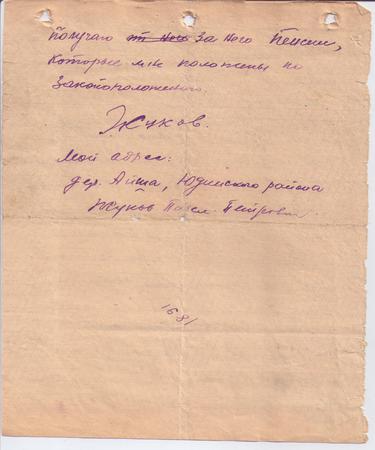 получаю от него За него Пенсии,
Которые мне положены по
Законоположению.
Жуков.
Мой адрес:
дер. Айша, Юдинского района
Жуков Павел Петрович.
1681